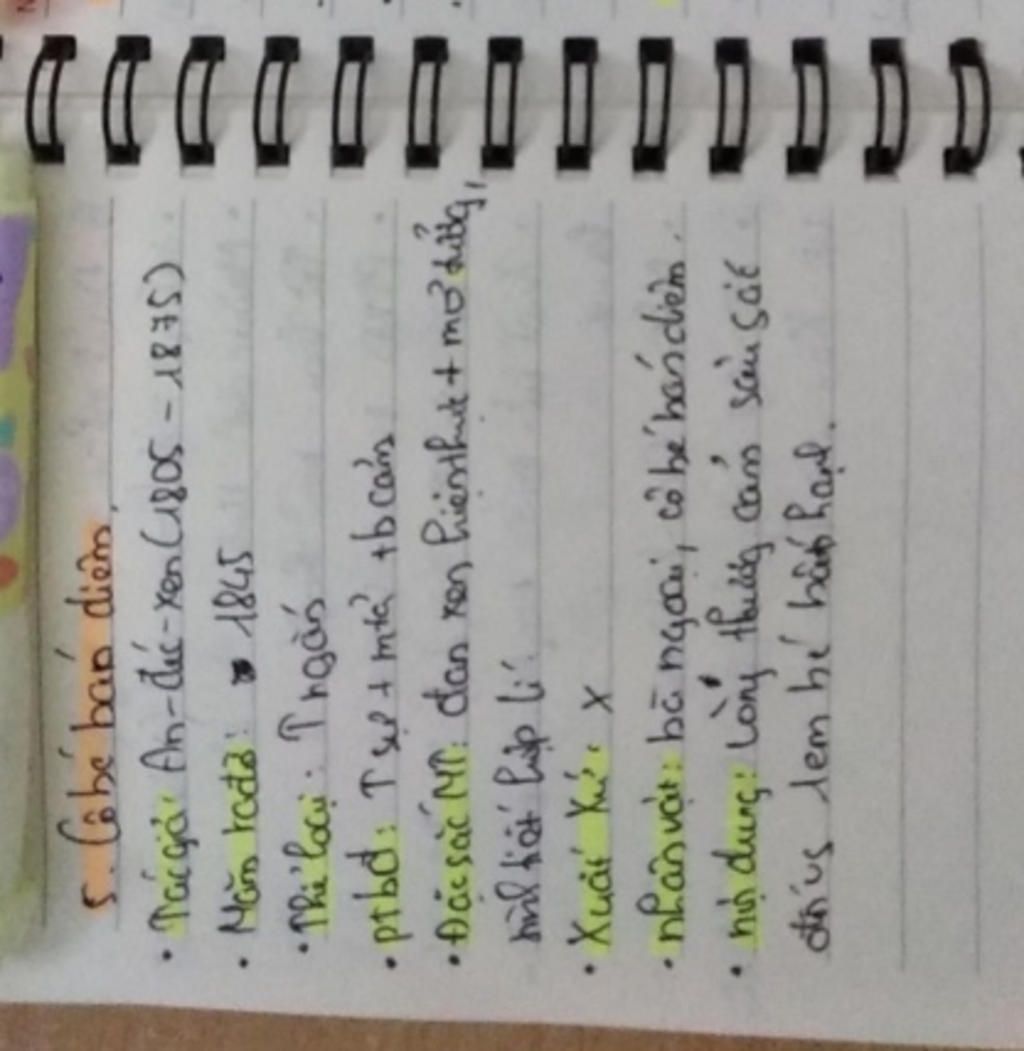 5. Cô bé bán diêm.
• Tác giả: An-đéc-xen (1805 - 1875)
• Năm ra đời: 1845
• Thể loại: T ngắn
• ptbđ: T sự + mtả + bcảm
• Đặc sắc NT: đan xen hiện thực + mơ tưởng,
tình tiết hợp lí.
• Xuất xứ: X
• nhân vật: bà ngoại, cô bé bán diêm.
• nội dung: Lòng thương cảm sâu sắc
đối vs 1 em bé bất hạnh.